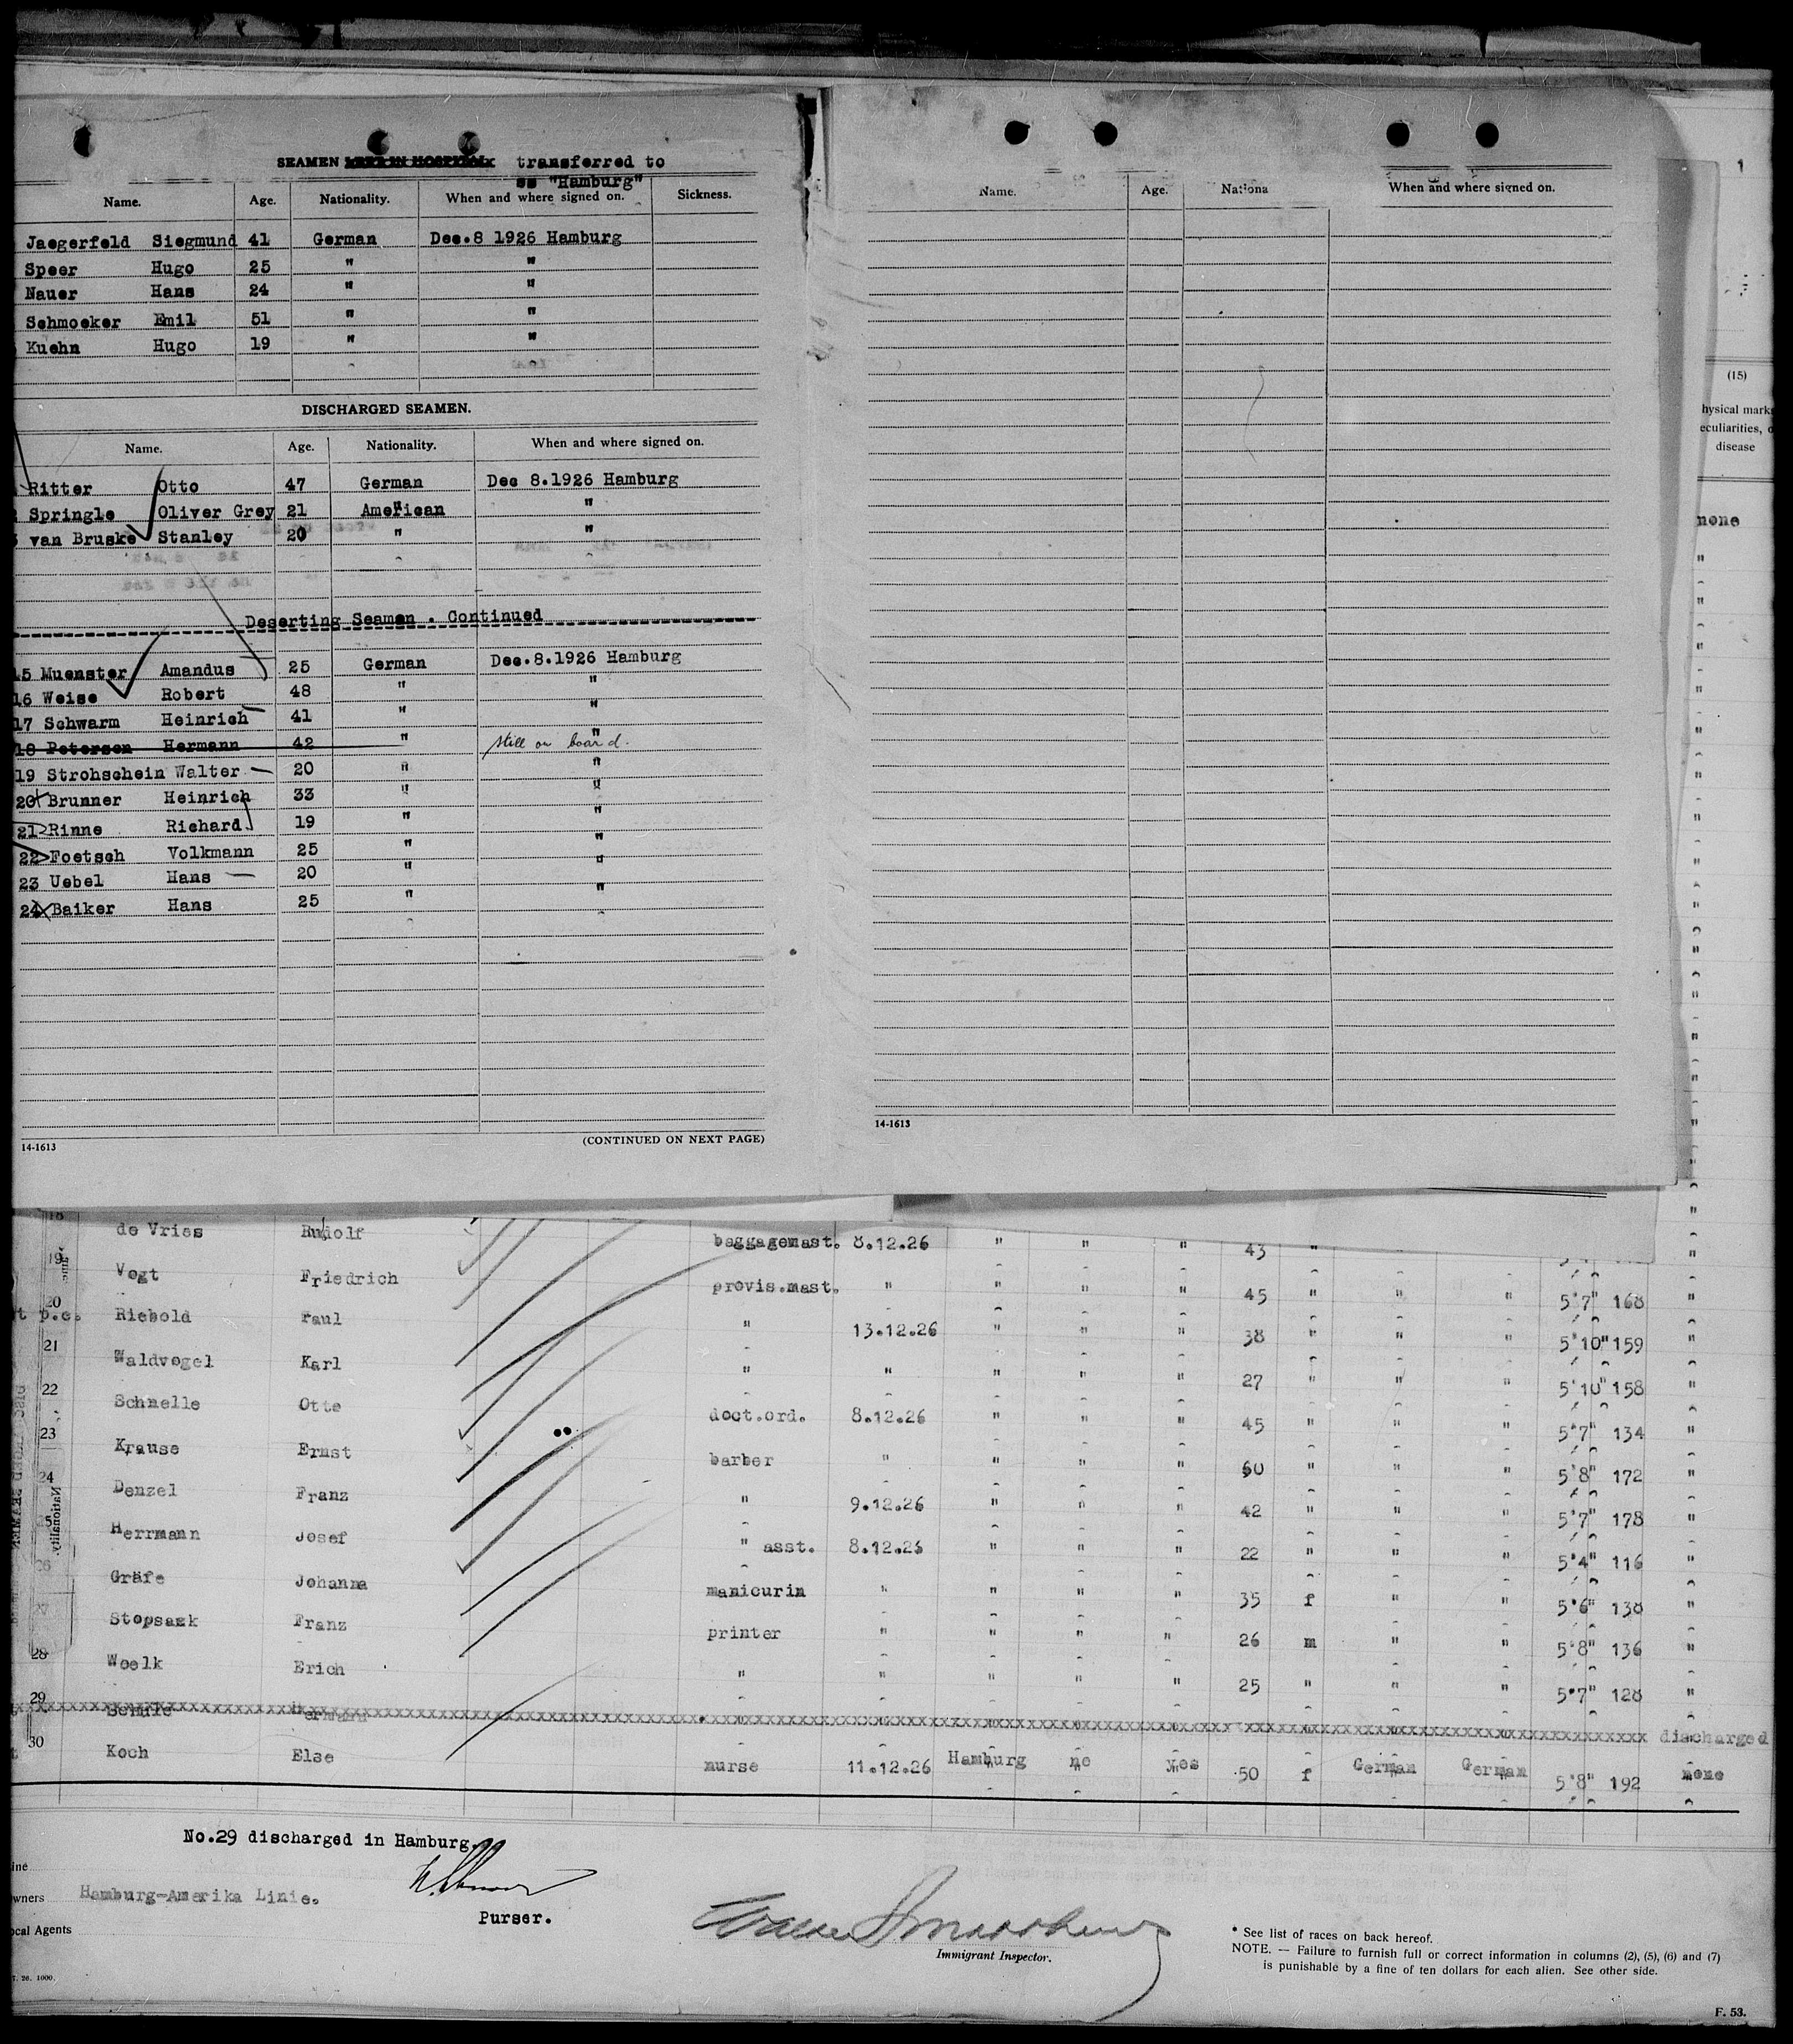 SEAMEN LEFT IN HOSPITAL transferred to
ss "Hamburg"
Name. Age. Nationality. When and where signed on. Sickness.
Jaegerfeld Siegmund 41 German Dec.8 1926 Hamburg
Speer Hugo 25 " "
Nauer Hans 24 " "
Schmoeker Emil 51 " "
Kuehn Hugo 19 " "
DISCHARGED SEAMEN.
Name. Age. Nationality. When and where signed on.
Ritter Otto 47 German Dec 8.1926 Hamburg
Springle Oliver Grey 21 American "
van Bruske Stanley 20 " "
Deserting Seamen . Continued
15 Muenster Amandus 25 German Dec.8.1926 Hamburg
16 Weise Robert 48 " "
17 Schwarm Heinrich 41 " "
18 Petersen Hermann 42 " " still on board.
19 Strohschein Walter 20 " "
20 Brunner Heinrich 33 " "
21 Rinne Richard 19 " "
22 Foetsch Volkmann 25 " "
23 Uebel Hans 20 " "
24 Baiker Hans 25 " "
14-1613 (CONTINUED ON NEXT PAGE)
Name. Age. Nationa When and where signed on.
14-1613
(15)
hysical marks
eculiarities, o
disease
none
18 de Vries Rudolf baggagemast. 8.12.26 " " " 43 "
19 Vogt Friedrich provis.mast. " " " " 45 " " " 5'7" 168 "
20 t p.c. Riebold Paul " 13.12.26 " " " 38 " " " 5'10" 159 "
21 Waldvogel Karl " " " " " 27 " " " 5'10" 158 "
22 Schnelle Otto doct.ord. 8.12.26 " " " 45 " " " 5'7" 134 "
23 Krause Ernst barber " " " " 60 " " " 5'8" 172 "
24 Denzel Franz " 9.12.26 " " " 42 " " " 5'7" 178 "
25 Herrmann Josef " asst. 8.12.26 " " " 22 " " " 5'4" 116 "
26 Gräfe Johanna manicurin " " " " 35 f " " 5'6" 138 "
27 Stopsack Franz printer " " " " 26 m " " 5'8" 136 "
28 Woelk Erich " " " " " 25 " " " 5'7" 128 "
29 Hermann discharged
30 Koch Else nurse 11.12.26 Hamburg no yes 50 f German German 5'8" 192 none
Nationality.
No.29 discharged in Hamburg.
ine
wners Hamburg-Amerika Linie.
Purser.
ocal Agents
Immigrant Inspector.
* See list of races on back hereof.
NOTE. — Failure to furnish full or correct information in columns (2), (5), (6) and (7)
is punishable by a fine of ten dollars for each alien. See other side.
T. 26. 1000.
F. 53.